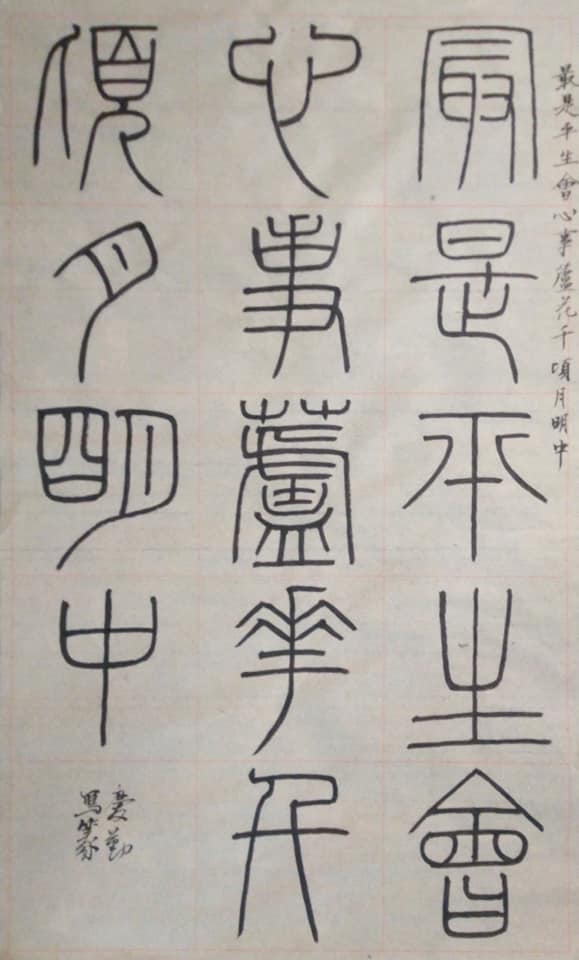 最是平生會心事蘆花千頃月明中
最是平生會
心事蘆花千
頃月明中
慶勤
寫篆